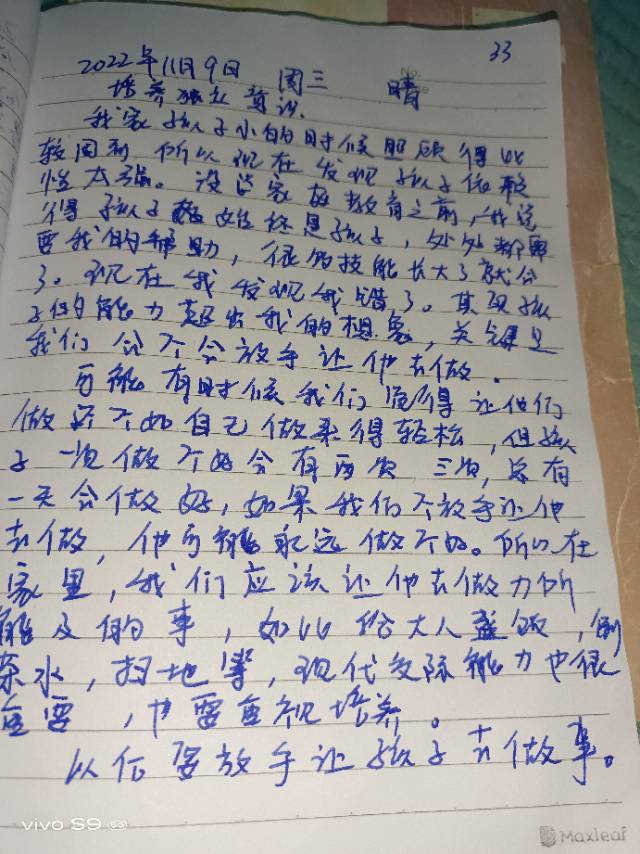 33
2022年11月9日 周三 晴
培养独立意识
我家孩子小的时候照顾得比
较周到,所以现在发现孩子依赖
性太强。没学家庭教育之前,我觉
得孩子始终是孩子,处处都需
要我的帮助,很多技能长大了就会
了。现在我发现我错了。其实孩
子的能力超出我的想象,关键是
我们会不会放手让他去做。
可能有时候我们觉得让他们
做还不如自己做来得轻松,但孩
子一次做不好会有两次,三次,总有
一天会做好,如果我们不放手让他
去做,他可能永远做不好。所以在
家里,我们应该让他去做力所
能及的事,如比给大人盛饭,倒
茶水,扫地等,现代交际能力也很
重要,也要重视培养。
以后要放手让孩子去做事。
vivo S9
Maxleaf